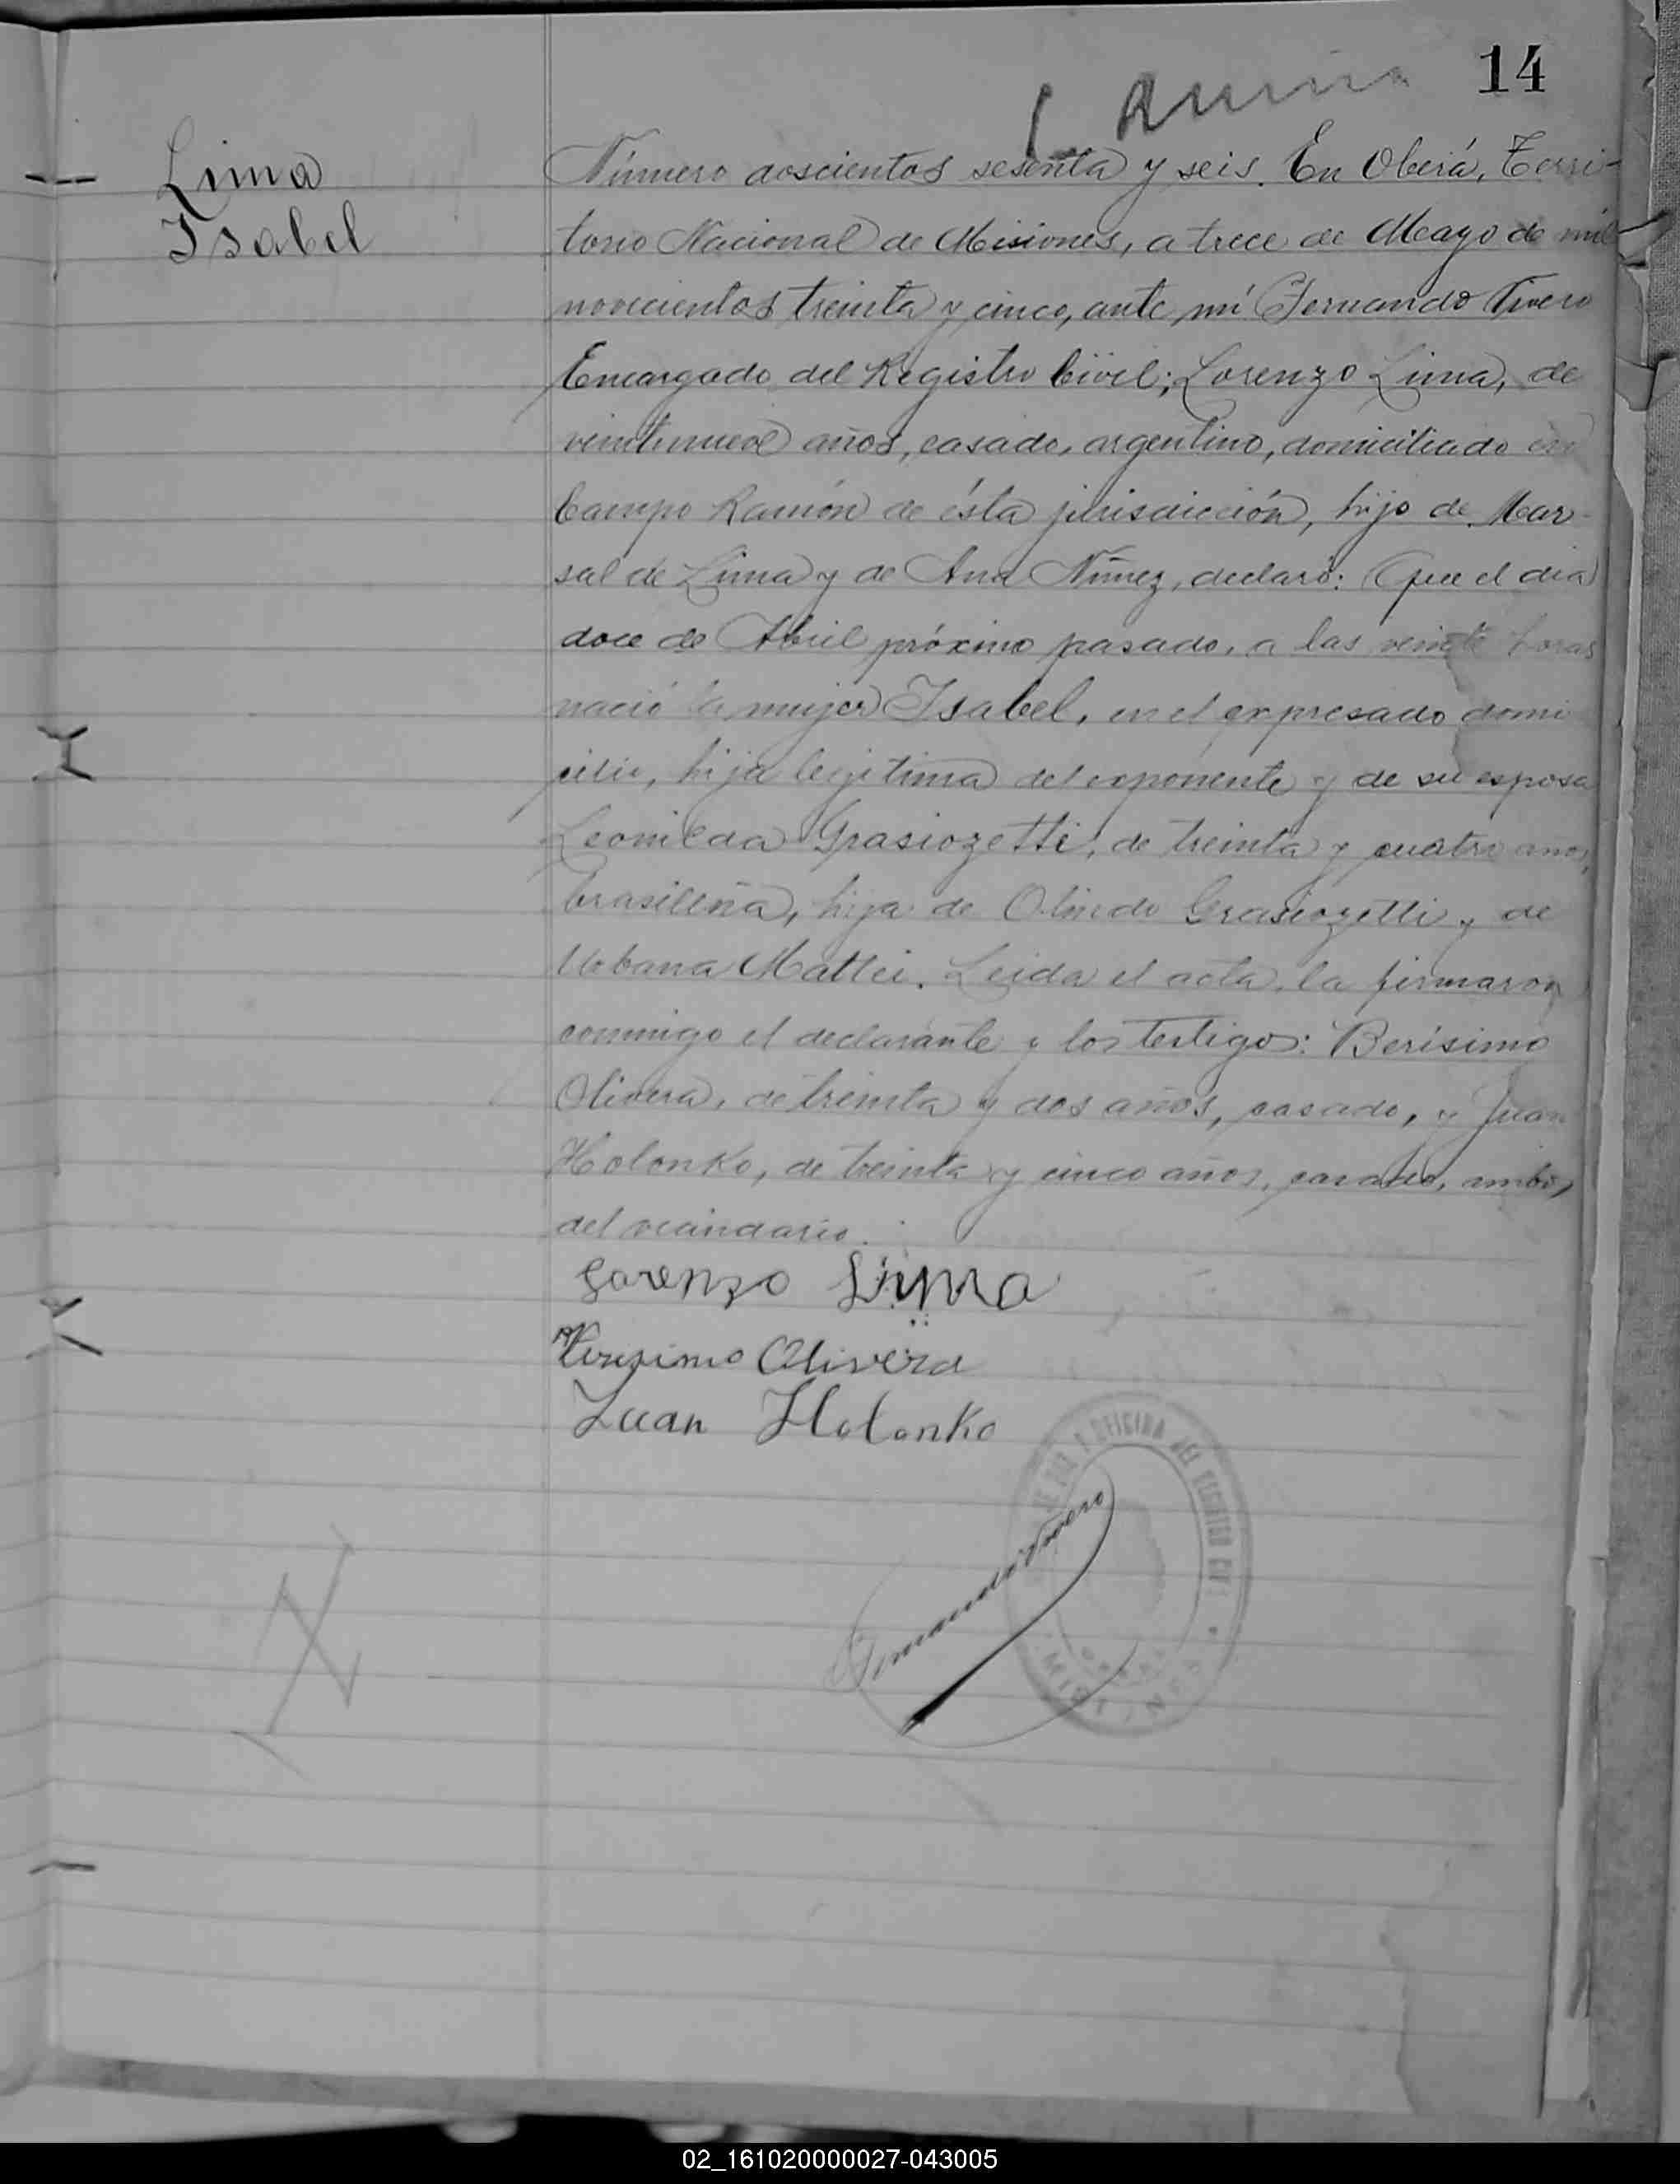 14
Lima
Isabel
Número doscientos sesenta y seis. En Oberá, Terri-
torio Nacional de Misiones, a trece de Mayo de mil
novecientos treinta y cinco, ante mi Fernando
Encargado del Registro Civil; Lorenzo Lima, de
veintinueve años, casado, argentino, domiciliado en
Campo Ramón de ésta jurisdicción, hijo de Mar-
sal de Lima y de Ana Núñez, declaró: Que el dia
doce de Abril próximo pasado, a las veinte horas
nació la mujer Isabel, en el expresado domi
cilio, hija legitima del exponente y de su esposa
Leonilda Grasiozetti, de treinta y cuatro años,
brasileña, hija de Olindo Grasiozetti y de
Urbana Mattei. Leida el acta, la firmaron
conmigo el declarante y los testigos: Berísimo
Olivera, de treinta y dos años, casado, y Juan
Holonko, de treinta y cinco años, casado, ambos
del vecindario.
Lorenzo Lima
Verisimo Olivera
Juan Holonko
OFICINA DEL REGISTRO CIVIL
Fernando
MISIONES
02_161020000027-043005